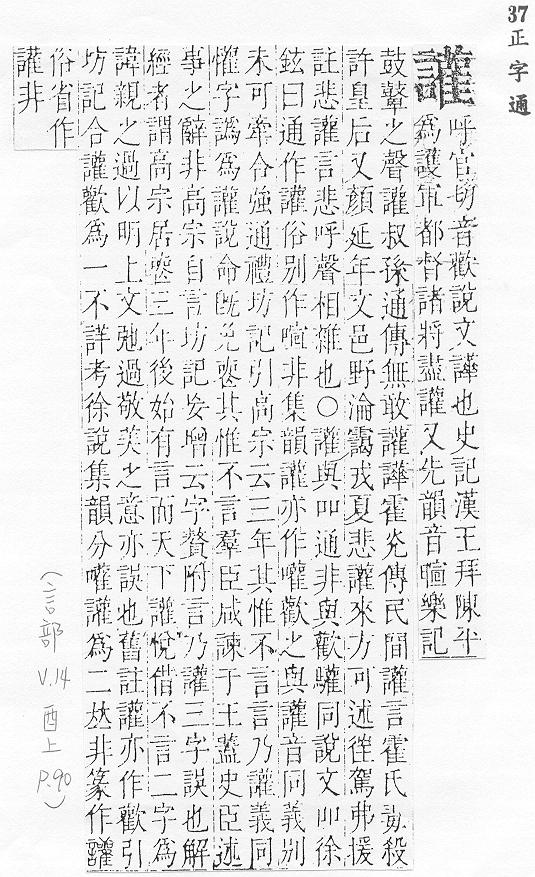 37 正字通
讙 呼官切音歡說文譁也史記漢王拜陳平
為護軍都督諸將盡讙又先韻音暄樂記
鼓鼙之聲讙叔孫通傳無敢讙譁霍光傳民間讙言霍氏毒殺
許皇后又顏延年文邑野淪靄戎夏悲讙來方可述徃駕弗援
註悲讙言悲呼聲相雜也○讙與吅通非與歡驩同說文吅徐
鉉曰通作讙俗別作喧非集韻讙亦作嚾歡之與讙音同義別
未可牽合強通禮坊記引高宗云三年其惟不言言乃讙義同
懽字譌為讙說命旣免喪其惟不言羣臣咸諫于王蓋史臣述
事之辭非高宗自言坊記妄增云字贅附言乃讙三字誤也解
經者謂高宗居喪三年後始有言而天下讙悅借不言二字為
諱親之過以明上文弛過敬美之意亦誤也舊註讙亦作歡引
坊記合讙歡為一不詳考徐說集韻分嚾讙為二𠀤非篆作讙
俗省作
讙非
(言部 V.14 酉上 P.90)